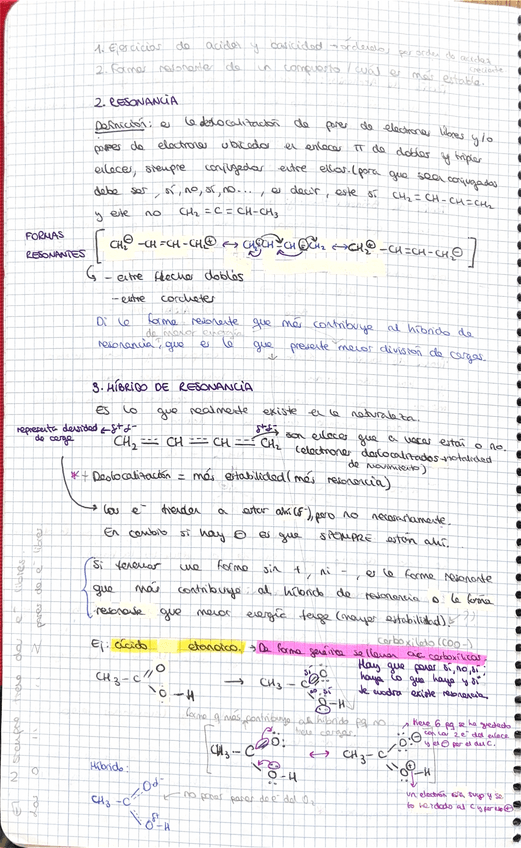 1. Ejercicios de acidez y basicidad → ordenarlos por orden de acidez creciente
2. Formas resonantes de un compuesto / cuál es más estable.
2. RESONANCIA
Definición: es la deslocalización de pares de electrones libres y/o
pares de electrones ubicados en enlaces π de dobles y triples
enlaces, siempre conjugados entre ellos. (para que sean conjugados
debe ser, sí, no, sí, no..., es decir, este sí CH2=CH-CH=CH2
y este no CH2=C=CH-CH3
FORMAS
RESONANTES
[CH2⊖-CH=CH-CH2⊕ ↔ CH2=CH-CH=CH2 ↔ CH2⊕-CH=CH-CH2⊖]
↳ - entre flechas dobles
- entre corchetes
Di la forma resonante que más contribuye al híbrido de
resonancia, que es la que presente menor división de cargas.
de menor energía
3. HÍBRIDO DE RESONANCIA
Es lo que realmente existe en la naturaleza.
representa densidad de carga
δ+ δ-
CH2 CH CH CH2
δ+ δ-
son enlaces que a veces están o no.
(electrones deslocalizados → totalidad
de movimiento)
* + Deslocalización = más estabilidad (más resonancia)
→ Los e- tienden a estar ahí (δ-), pero no necesariamente.
En cambio si hay ⊖ es que SIEMPRE están ahí.
Si tenemos una forma sin +, ni -, es la forma resonante
que más contribuye al híbrido de resonancia o la forma
resonante que menor energía tenga (mayor estabilidad)
carboxilato (COO-)
Ej: ácido etanoico. → De forma genérica se llaman ác. carboxílicos.
CH3-C O O-H → CH3-C O O-H
Hay que poner sí, no, sí
haya lo que haya y si
te cuadra existe resonancia.
forma q más contribuye al híbrido pq no
hay cargas.
[CH3-C O: O-H ↔ CH3-C O:⊖ O⊕-H]
tiene 6 pq se ha quedado
con los 2 e- del enlace
y el ⊖ por el del C.
un electrón era suyo y se
lo ha dado al C y por eso ⊕
Híbrido:
CH3-C Oδ- Oδ+-H
no poner pares de e- del O.